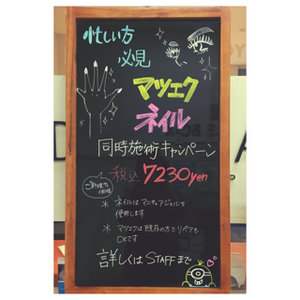 忙しい方
必見
マツエク
ネイル
同時施術キャンペーン
税込 7230yen
* ネイルは
使用します
* マツエクは既存の方もリペアも
OKです
詳しくはSTAFFまで